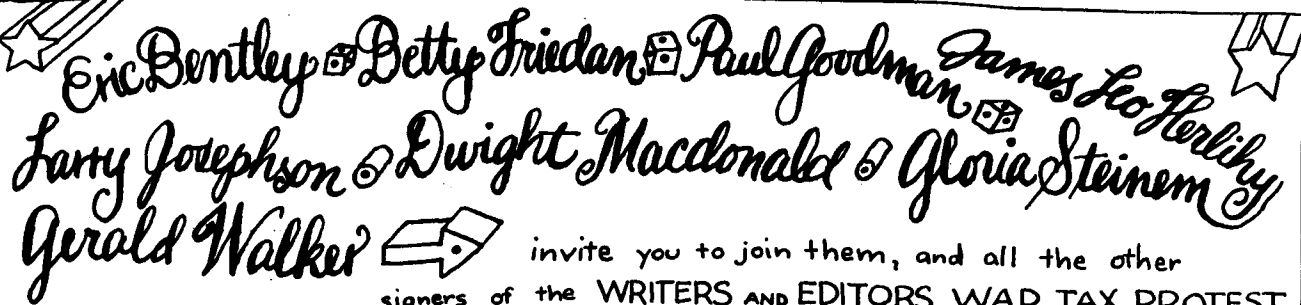 Eric Bentley Betty Friedan Paul Goodman James Leo Herlihy
Larry Josephson Dwight Macdonald Gloria Steinem
Gerald Walker invite you to join them, and all the other
signers of the WRITERS AND EDITORS WAR TAX PROTEST